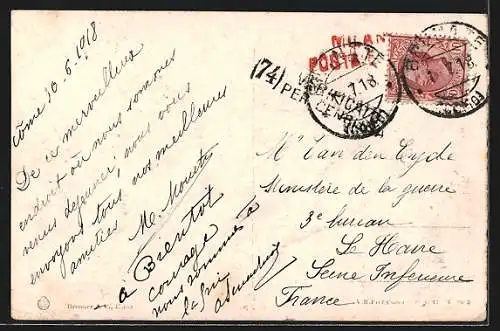 Côme 10.6.1918
De ce merveilleux
endroit où nous sommes
venus dejeuner, nous vous
envoyons tous nos meilleures
amitiés
M. Mouets
à Bientot
courage
nous sommes à
la fin
MILAN
POSTA
(74)
VERIFICATO
PER CENSURA
Mr Van den Eyde
Ministère de la guerre
3e bureau
Le Havre
Seine Inférieure
France